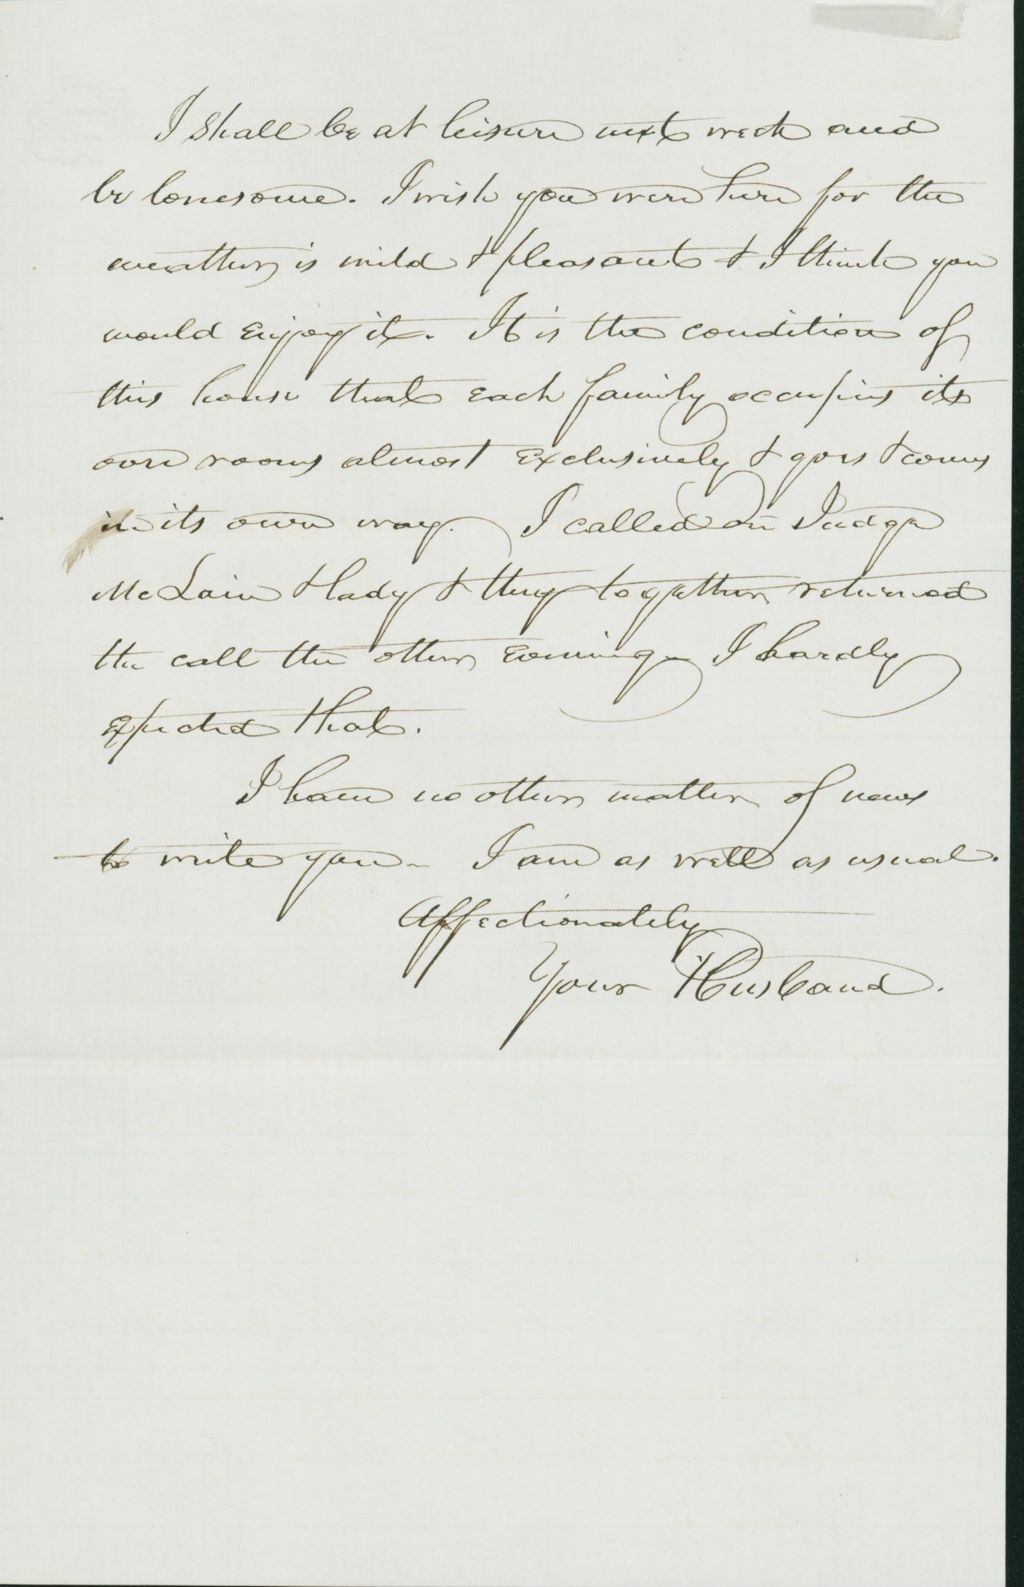 I shall be at leisure next week and
be lonesome. I wish you were here for the
weather is mild & pleasant & I think you
would enjoy it. It is the condition of
this house that each family occupies its
own rooms almost exclusively & goes & comes
in its own way. I called on Judge
McLain & lady & they together returned
the call the other evening. I hardly
expected that.
I have no other matter of news
to write you. I am as well as usual.
Affectionately
Your Husband.